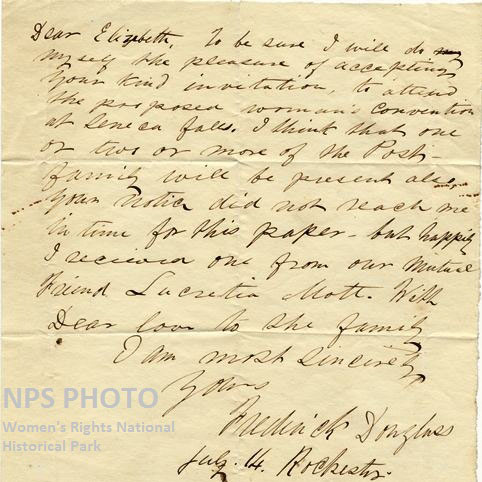 Dear Elizabeth, To be sure I will do my
myself the pleasure of accepting
your kind invitation, to attend
the proposed woman's convention
at Seneca falls. I think that one
or two or more of the Post-
family will be present also
your notice did not reach me
in time for this paper - but happily
I received one from our mutual
Friend Lucretia Mott. With
Dear love to the family
I am most sincerely
Yours
Frederick Douglass
July. 14. Rochester.
NPS PHOTO
Women's Rights National
Historical Park